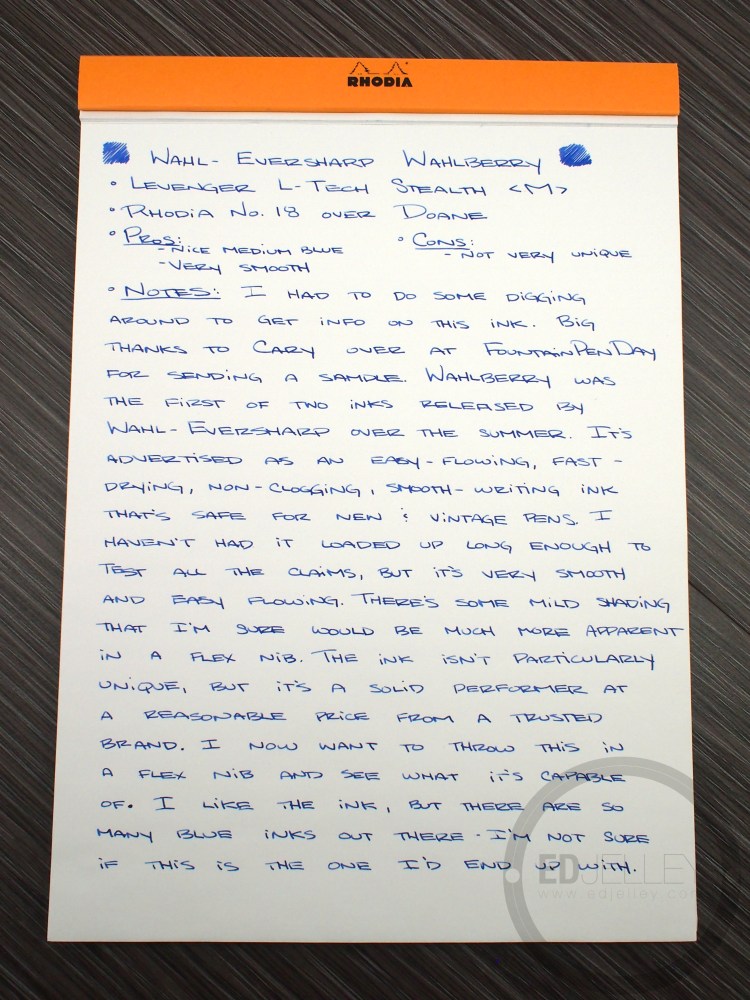 RHODIA
WAHL-EVERSHARP WAHLBERRY
• LEVENGER L-TECH STEALTH <M>
• RHODIA NO. 18 OVER DOANE
• PROS:
- NICE MEDIUM BLUE
- VERY SMOOTH
• CONS:
- NOT VERY UNIQUE
• NOTES: I HAD TO DO SOME DIGGING
AROUND TO GET INFO ON THIS INK. BIG
THANKS TO CARY OVER AT FOUNTAINPENDAY
FOR SENDING A SAMPLE. WAHLBERRY WAS
THE FIRST OF TWO INKS RELEASED BY
WAHL-EVERSHARP OVER THE SUMMER. IT'S
ADVERTISED AS AN EASY-FLOWING, FAST-
DRYING, NON-CLOGGING, SMOOTH-WRITING INK
THAT'S SAFE FOR NEW & VINTAGE PENS. I
HAVEN'T HAD IT LOADED UP LONG ENOUGH TO
TEST ALL THE CLAIMS, BUT IT'S VERY SMOOTH
AND EASY FLOWING. THERE'S SOME MILD SHADING
THAT I'M SURE WOULD BE MUCH MORE APPARENT
IN A FLEX NIB. THE INK ISN'T PARTICULARLY
UNIQUE, BUT IT'S A SOLID PERFORMER AT
A REASONABLE PRICE FROM A TRUSTED
BRAND. I NOW WANT TO THROW THIS IN
A FLEX NIB AND SEE WHAT IT'S CAPABLE
OF. I LIKE THE INK, BUT THERE ARE SO
MANY BLUE INKS OUT THERE. I'M NOT SURE
IF THIS IS THE ONE I'D END UP WITH.
EDJELLEY
www.edjelley.com